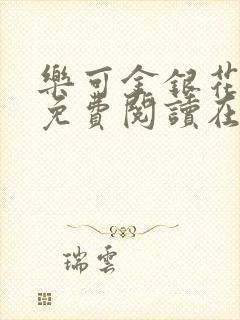 樂可金銀花
免費閱讀在
瑞雲